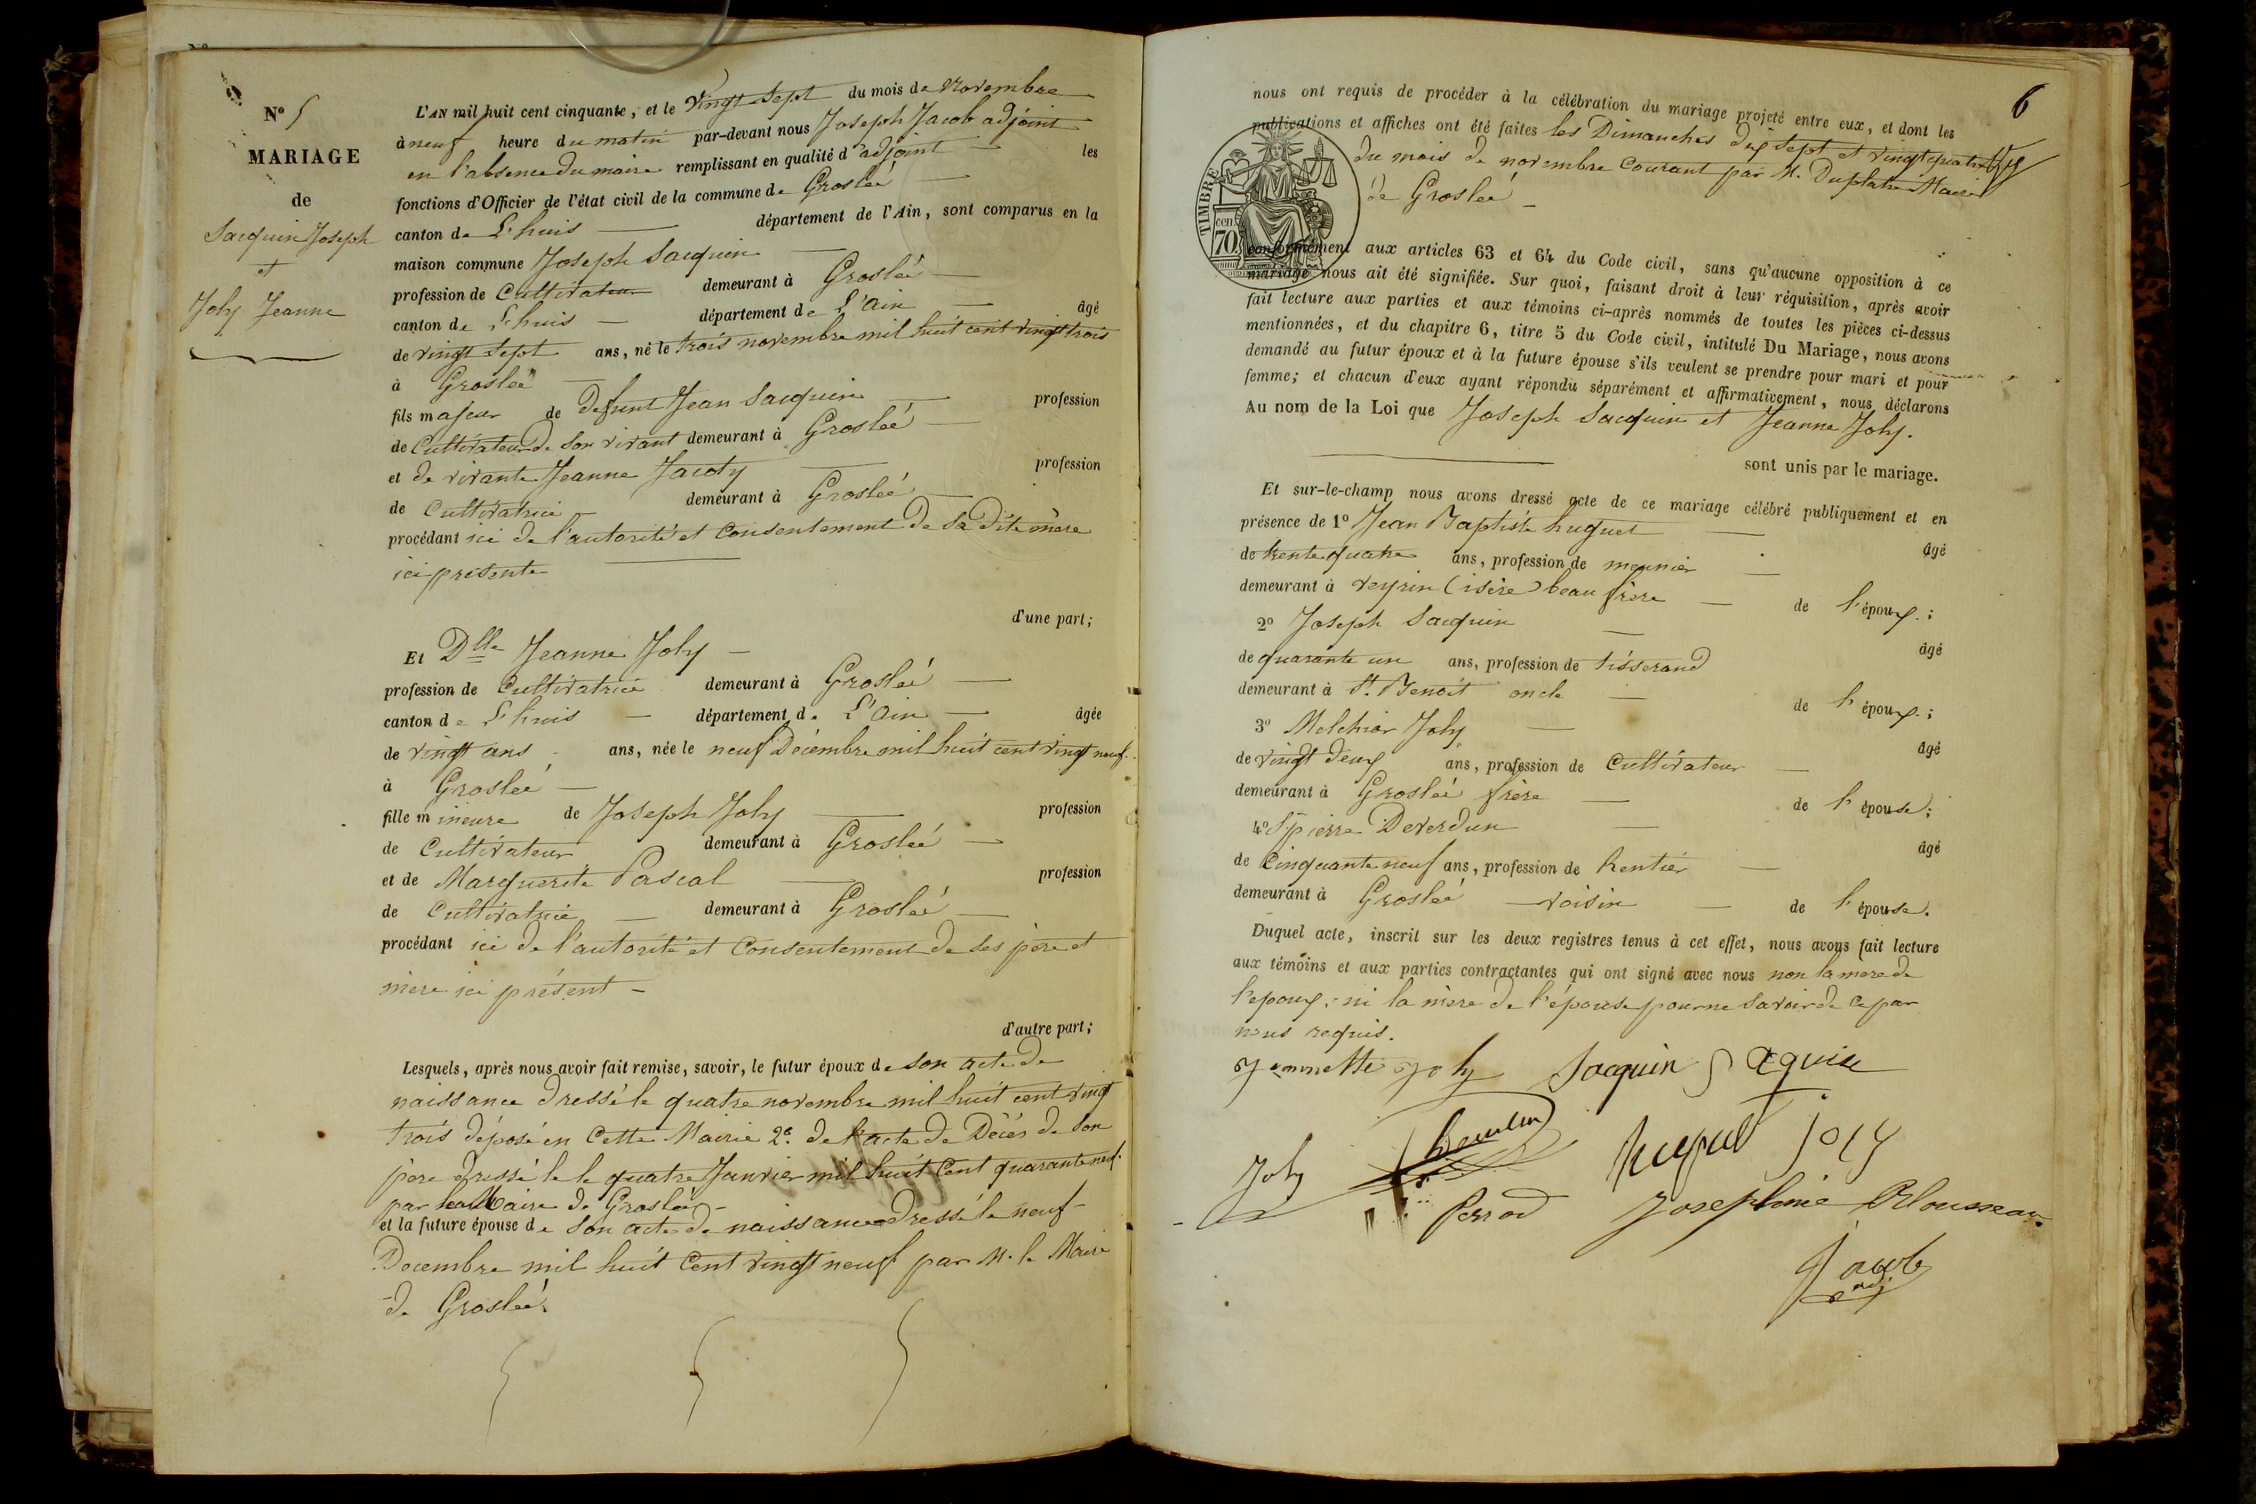 N° 5
MARIAGE
de
Sacquin Joseph
et
Joly Jeanne
L'AN mil huit cent cinquante, et le vingt sept du mois de Novembre
à neuf heure du matin par-devant nous Joseph Jacob adjoint
en l'absence du maire remplissant en qualité d'adjoint les
fonctions d'Officier de l'état civil de la commune de Groslée
canton de L'huis département de l'Ain, sont comparus en la
maison commune Joseph Sacquin
profession de Cultivateur demeurant à Groslée
canton de L'huis département de L'Ain âgé
de vingt sept ans, né le trois novembre mil huit cent vingt trois
à Groslée
fils majeur de defunt Jean Sacquin profession
de Cultivateur de son vivant demeurant à Groslée
et de vivante Jeanne Jacoty profession
de Cultivatrice demeurant à Groslée
procédant ici de l'autorité et consentement de sa dite mère
ici présente
d'une part;
Et Dlle Jeanne Joly
profession de Cultivatrice demeurant à Groslée
canton de L'huis département de L'Ain âgée
de vingt ans ans, née le neuf Décembre mil huit cent vingt neuf
à Groslée
fille mineure de Joseph Joly profession
de Cultivateur demeurant à Groslée
et de Marguerite Pascal profession
de Cultivatrice demeurant à Groslée
procédant ici de l'autorité et consentement de ses père et
mère ici présent
d'autre part;
Lesquels, après nous avoir fait remise, savoir, le futur époux de son acte de
naissance dressé le quatre novembre mil huit cent vingt
trois déposé en cette Mairie 2e. de l'acte de Décès de son
père dressé le le quatre Janvier mil huit cent quarante neuf
par Maire de Groslée
et la future épouse de son acte de naissance dressé le neuf
Decembre mil huit cent vingt neuf par M. le Maire
de Groslée
6
nous ont requis de procéder à la célébration du mariage projeté entre eux, et dont les
publications et affiches ont été faites les Dimanches dix sept et vingt quatre
du mois de novembre courant par M. Duplatre Maire
de Groslée
TIMBRE
cen.
70
conformément aux articles 63 et 64 du Code civil, sans qu'aucune opposition à ce
mariage nous ait été signifiée. Sur quoi, faisant droit à leur réquisition, après avoir
fait lecture aux parties et aux témoins ci-après nommés de toutes les pièces ci-dessus
mentionnées, et du chapitre 6, titre 5 du Code civil, intitulé Du Mariage, nous avons
demandé au futur époux et à la future épouse s'ils veulent se prendre pour mari et pour
femme; et chacun d'eux ayant répondu séparément et affirmativement, nous déclarons
Au nom de la Loi que Joseph Sacquin et Jeanne Joly.
sont unis par le mariage.
Et sur-le-champ nous avons dressé acte de ce mariage célébré publiquement et en
présence de 1° Jean Baptiste huguet
âgé
de trente quatre ans, profession de meunier
demeurant à veyrin (isère) beau frère de l'époux;
2° Joseph Sacquin
âgé
de quarante un ans, profession de tisserand
demeurant à St. Benoit oncle de l'époux;
3° Melchior Joly
âgé
de vingt deux ans, profession de Cultivateur
demeurant à Groslée frère de l'épouse;
4° pierre Deverdun
âgé
de Cinquante neuf ans, profession de Rentier
demeurant à Groslée voisin de l'épouse.
Duquel acte, inscrit sur les deux registres tenus à cet effet, nous avons fait lecture
aux témoins et aux parties contractantes qui ont signé avec nous non la mere de
l'epoux ni la mère de l'épouse pour ne savoir de ce par
nous requis.
Jennette Joly Sacquin Saquin
huguet joly
Joly
Perrod Josephine
Jacob
adj